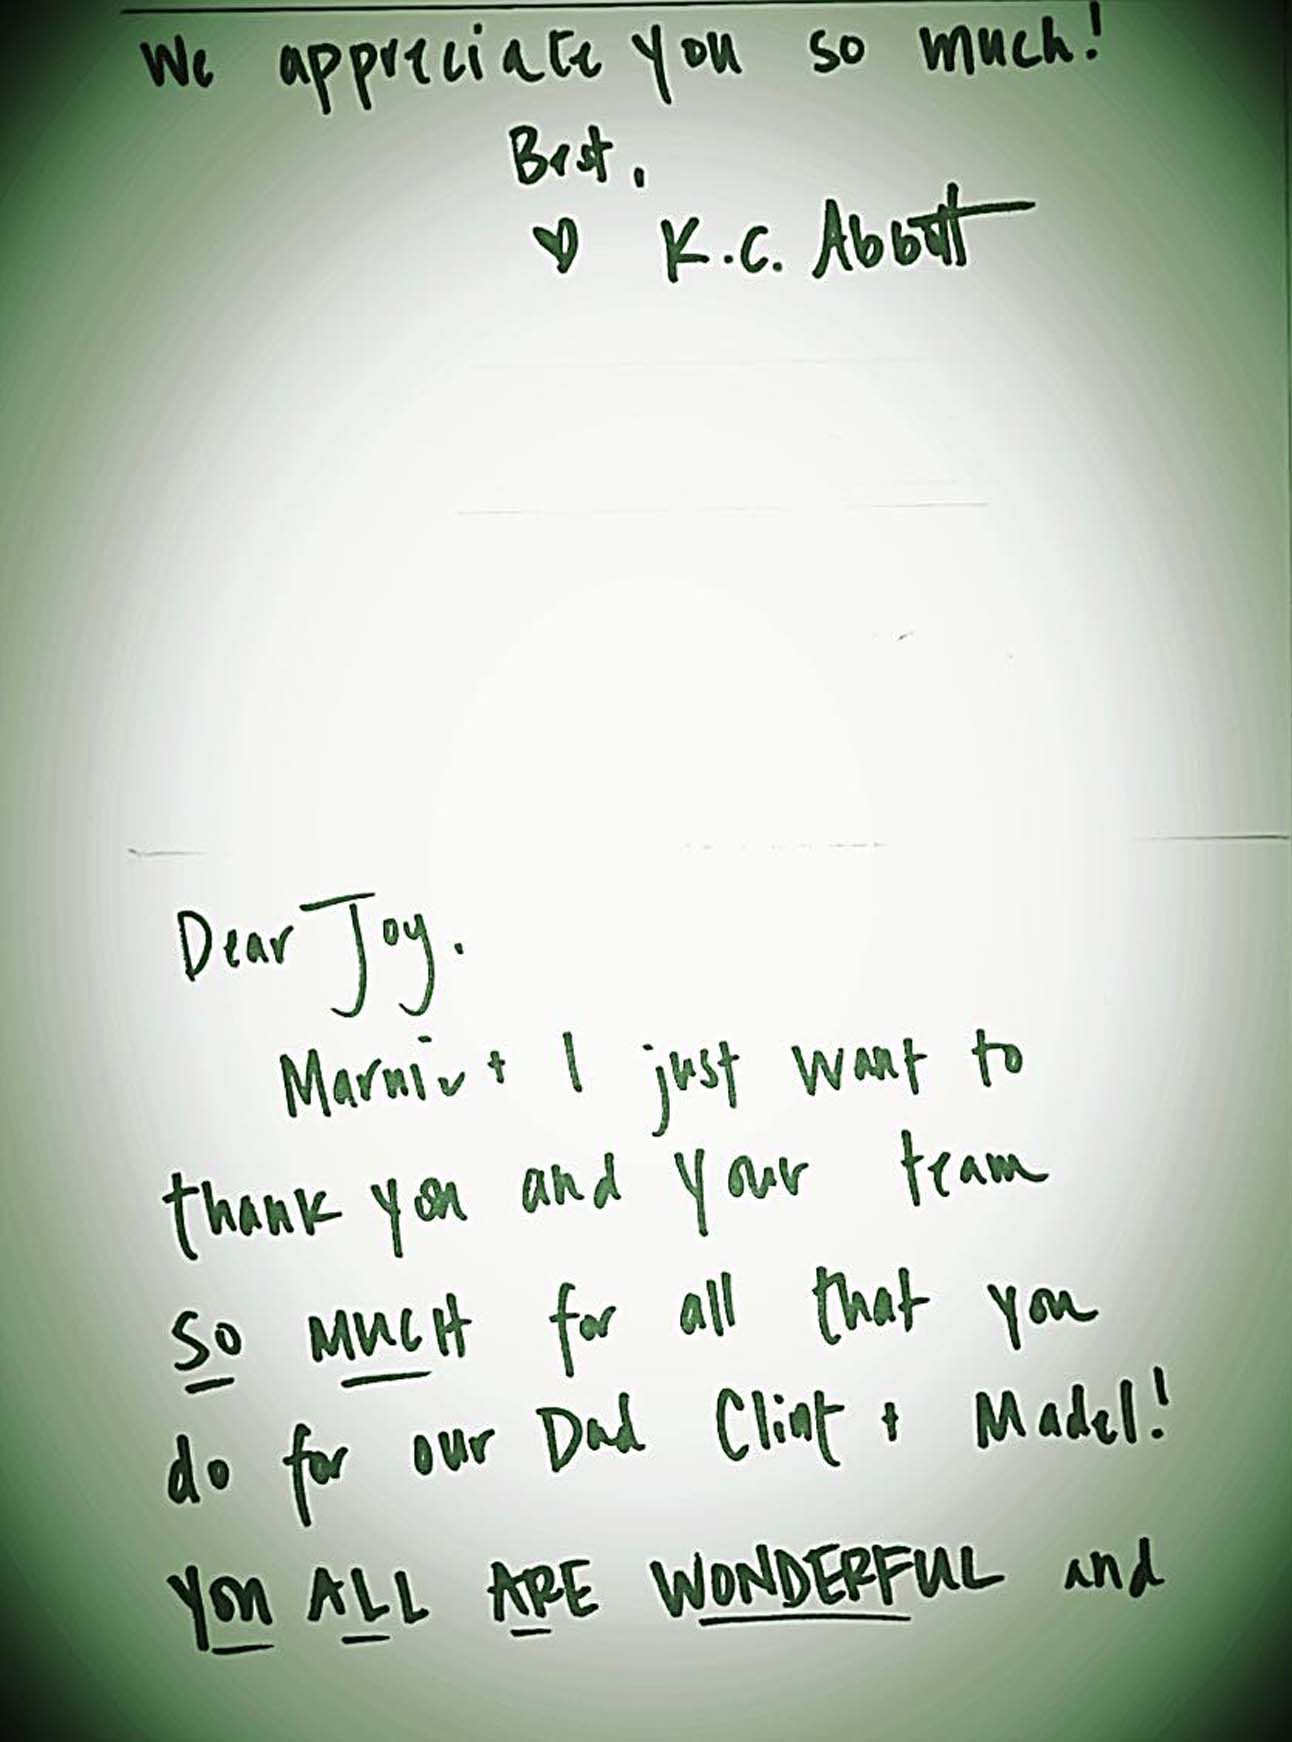 We appreciate you so much!
Best,
♡ K.C. Abbott
Dear Joy.
Marnie + I just want to
thank you and your team
SO MUCH for all that you
do for our Dad Clint + Madel!
You ALL ARE WONDERFUL and